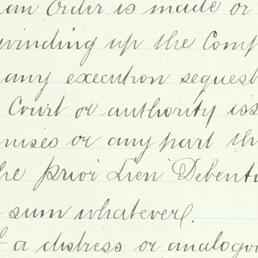 an Order is made or
winding up the Comp
any execution sequest
Court or authority iss
mises or any part th
he prior Lien Debentu
sum whatever.
f a distress or analogou